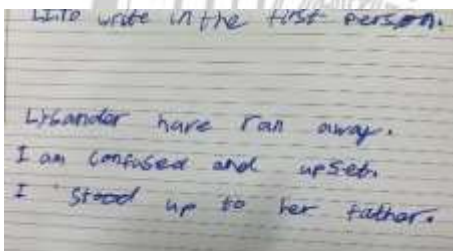 LI:To write in the first person.
Lysander have ran away.
I am confused and upset.
I stood up to her father.